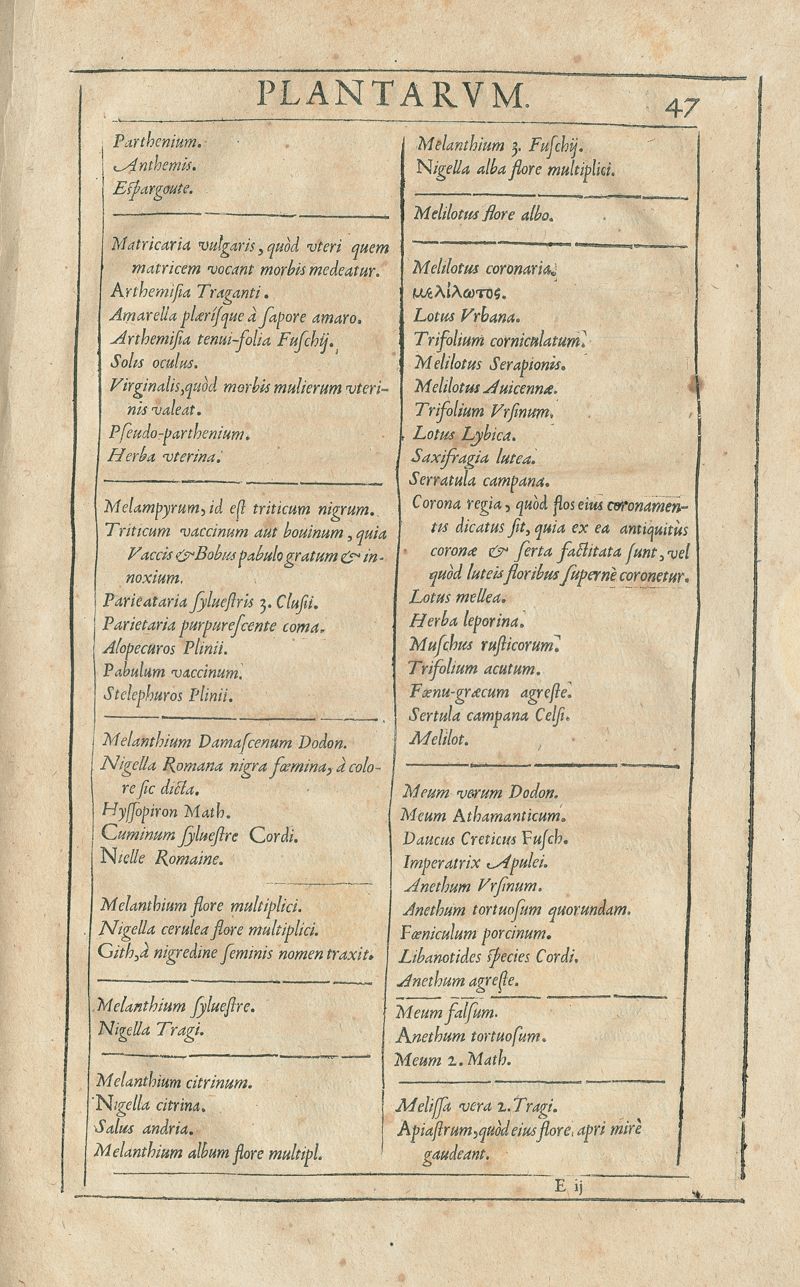 PLANTARVM.
47
Parthenium.
Anthemis.
Eſpargoute.
Matricaria vulgaris, quòd vteri quem
matricem vocant morbis medeatur.
Arthemiſia Traganti.
Amarella plæriſque à ſapore amaro.
Arthemiſia tenui-folia Fuſchij.
Solis oculus.
Virginalis, quòd morbis mulierum vteri-
nis valeat.
Pſeudo-parthenium.
Herba vterina.
Melampyrum, id eſt triticum nigrum.
Triticum vaccinum aut bouinum, quia
Vaccis & Bobus pabulo gratum & in-
noxium.
Parieataria ſylueſtris 3. Cluſii.
Parietaria purpureſcente coma.
Alopecuros Plinii.
Pabulum vaccinum.
Stelephuros Plinii.
Melanthium Damaſcenum Dodon.
Nigella Romana nigra fœmina, à colo-
re ſic dicta.
Hyſſopiron Math.
Cuminum ſylueſtre Cordi.
Nielle Romaine.
Melanthium flore multiplici.
Nigella cerulea flore multiplici.
Gith, à nigredine ſeminis nomen traxit.
Melanthium ſylueſtre.
Nigella Tragi.
Melanthium citrinum.
Nigella citrina.
Salus andria.
Melanthium album flore multipl.
Melanthium 3. Fuſchij.
Nigella alba flore multiplici.
Melilotus flore albo.
Melilotus coronaria.
μελίλωτος.
Lotus Vrbana.
Trifolium corniculatum.
Melilotus Serapionis.
Melilotus Auicennæ.
Trifolium Vrſinum.
Lotus Lybica.
Saxifragia lutea.
Serratula campana.
Corona regia, quòd flos eius coronamen-
tis dicatus ſit, quia ex ea antiquitùs
coronæ & ſerta factitata ſunt, vel
quòd luteis floribus ſupernè coronetur.
Lotus mellea.
Herba leporina.
Muſchus ruſticorum.
Trifolium acutum.
Fœnu-græcum agreſte.
Sertula campana Celſi.
Melilot.
Meum verum Dodon.
Meum Athamanticum.
Daucus Creticus Fuſch.
Imperatrix Apulei.
Anethum Vrſinum.
Anethum tortuoſum quorundam.
Fœniculum porcinum.
Libanotides ſpecies Cordi.
Anethum agreſte.
Meum falſum.
Anethum tortuoſum.
Meum 2. Math.
Meliſſa vera 2. Tragi.
Apiaſtrum, quòd eius flore, apri mirè
gaudeant.
E ij